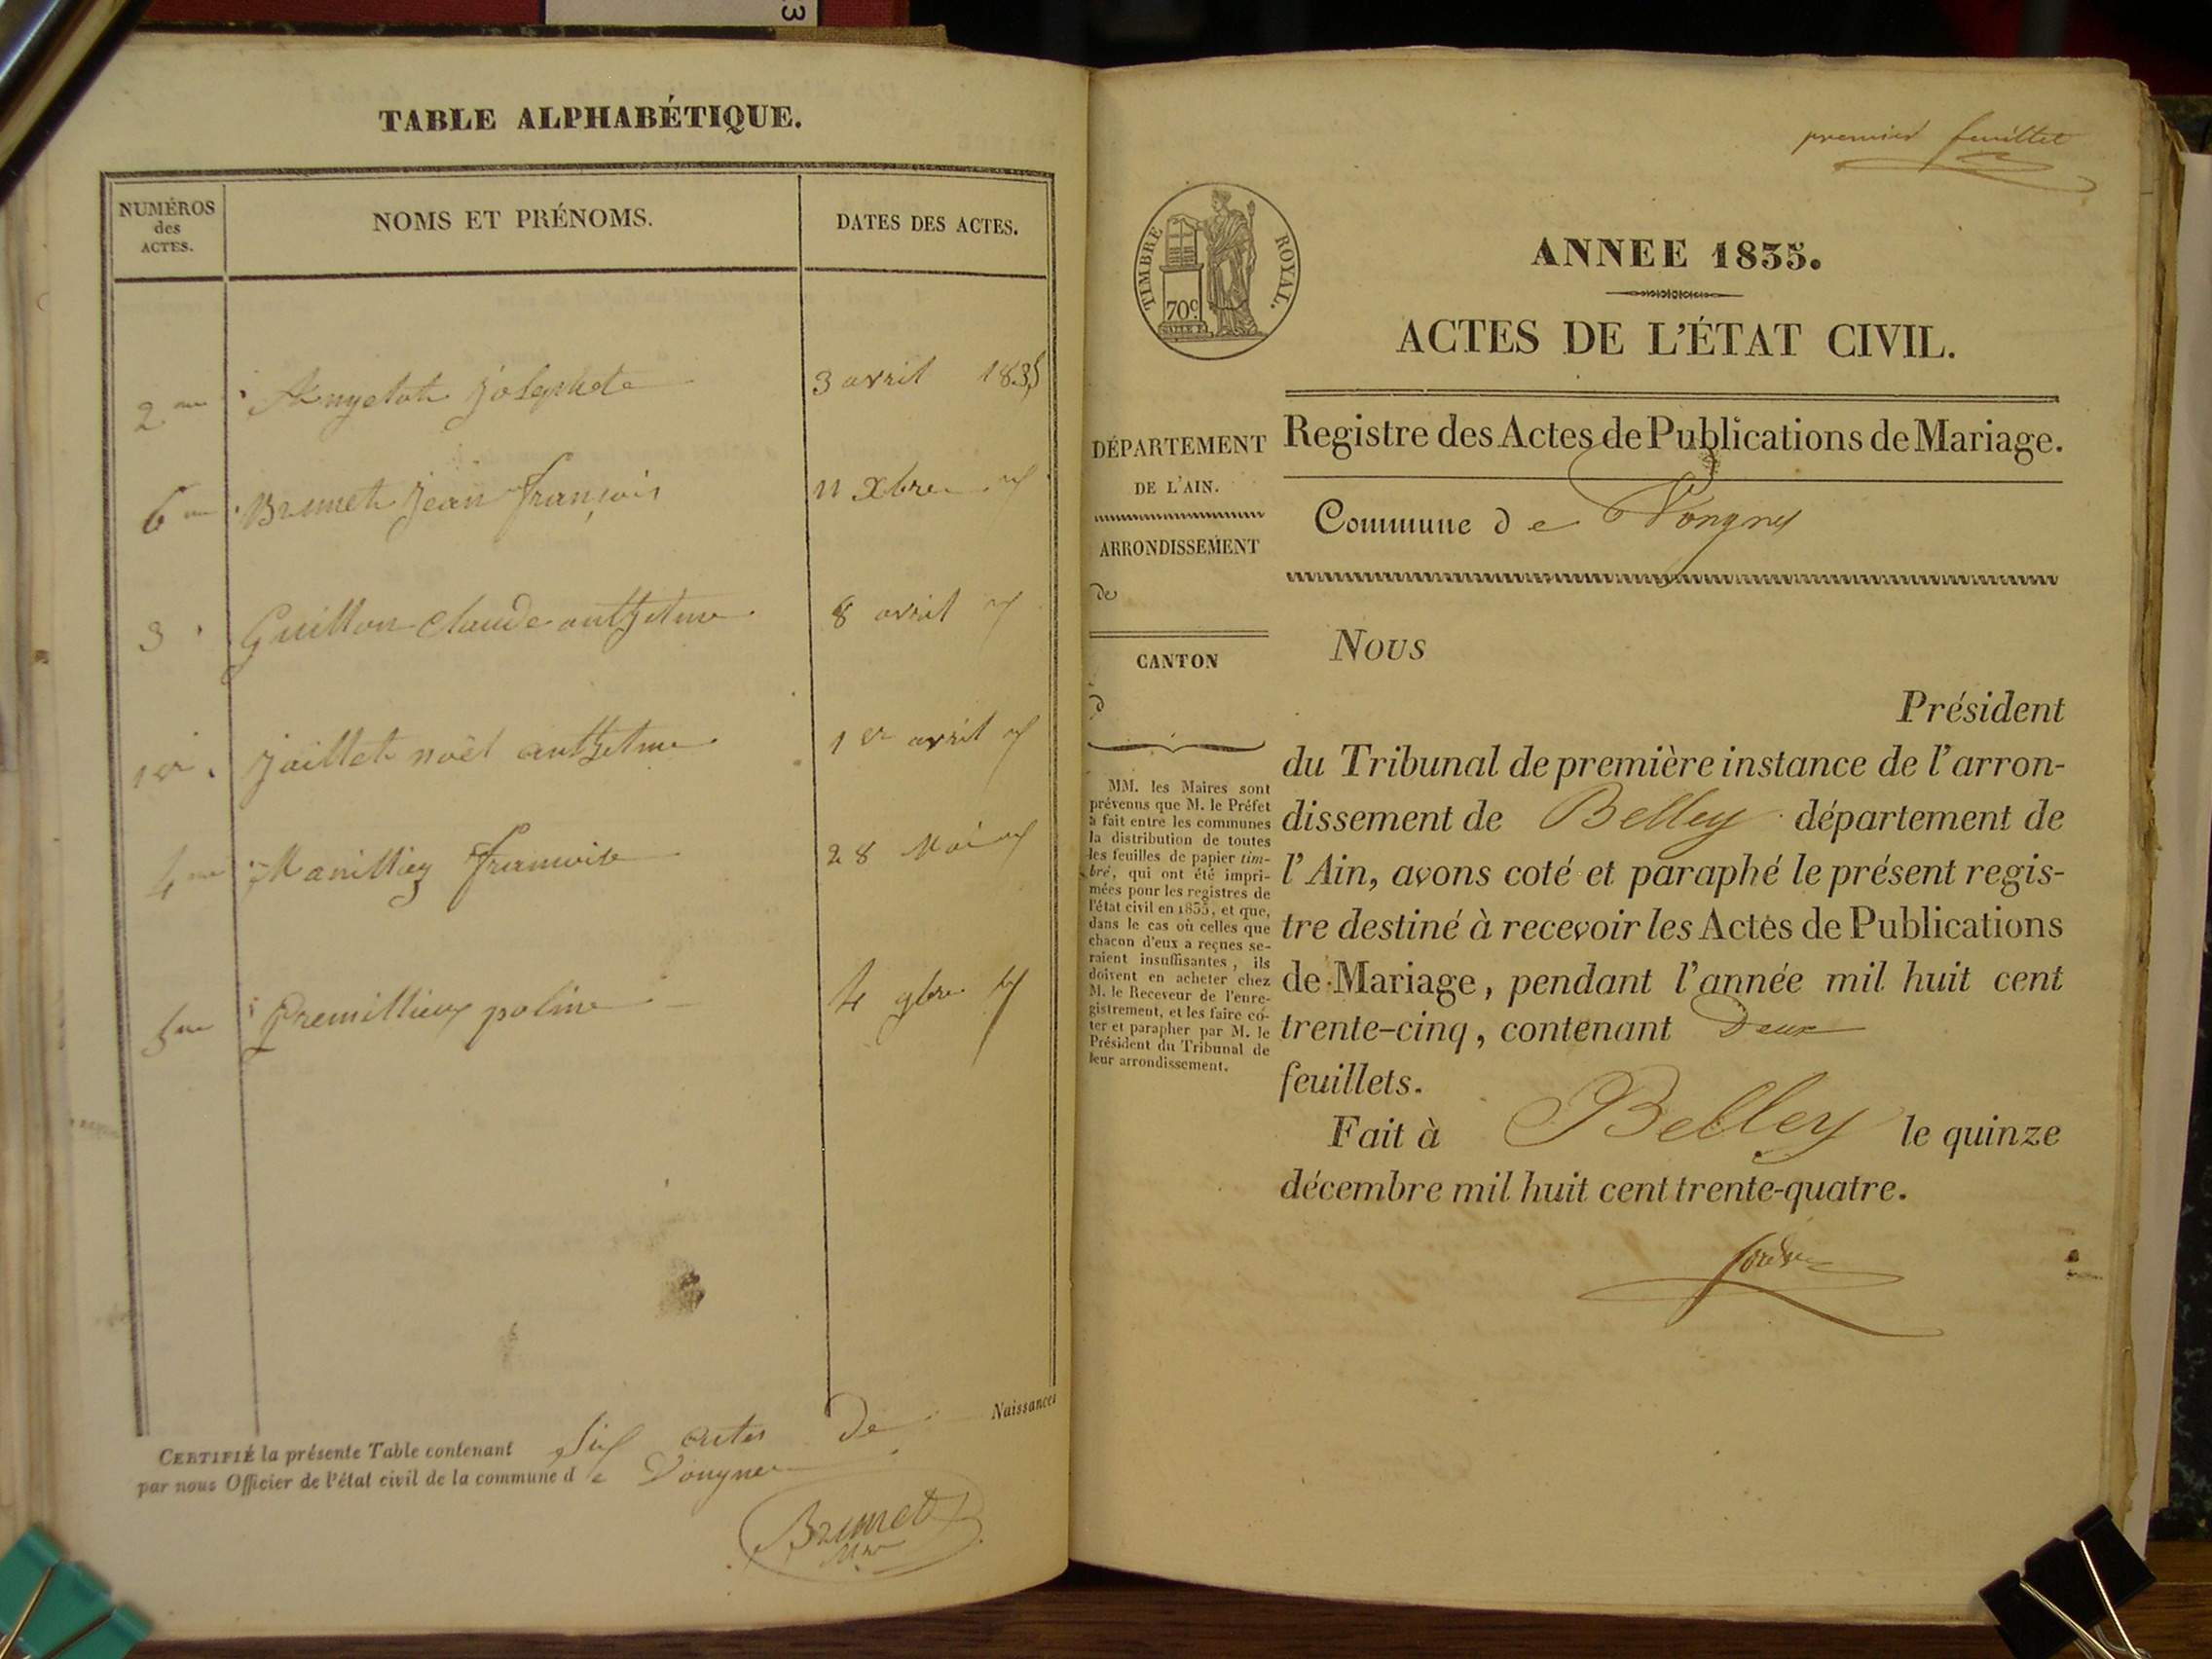 3
TABLE ALPHABÉTIQUE.
NUMÉROS
des
ACTES.
NOMS ET PRÉNOMS.
DATES DES ACTES.
2me josephete 3 avril 1835
6me Brunet jean françois 11 Xbre
3 Guillon claude anthelme 8 avril
1er jaillet noël anthelme 1er avril
4me françoise 28 Mai
5me Premillieux poline 4 9bre
CERTIFIÉ la présente Table contenant Six actes de Naissances
par nous Officier de l'état civil de la commune de Vongnes
Brunet
Mre
premier feuillet
TIMBRE ROYAL.
70c
ANNEE 1835.
ACTES DE L'ÉTAT CIVIL.
DÉPARTEMENT
DE L'AIN.
ARRONDISSEMENT
de
CANTON
d
MM. les Maires sont
prévenus que M. le Préfet
a fait entre les communes
la distribution de toutes
les feuilles de papier tim-
bré, qui ont été impri-
mées pour les registres de
l'état civil en 1835, et que,
dans le cas où celles que
chacun d'eux a reçues se-
raient insuffisantes, ils
doivent en acheter chez
M. le Receveur de l'enre-
gistrement, et les faire co-
ter et parapher par M. le
Président du Tribunal de
leur arrondissement.
Registre des Actes de Publications de Mariage.
Commune de Vongnes
Nous
Président
du Tribunal de première instance de l'arron-
dissement de Belley département de
l'Ain, avons coté et paraphé le présent regis-
tre destiné à recevoir les Actes de Publications
de Mariage, pendant l'année mil huit cent
trente-cinq, contenant Deux
feuillets.
Fait à Belley le quinze
décembre mil huit cent trente-quatre.